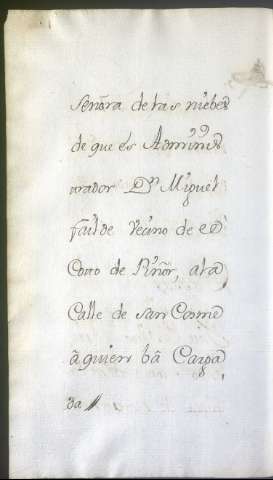 Señora de las niebes
de que es Adminis
trador Dn Miguel
failde vecino de el
Coto de Piñor, ala
Calle de san Cosme
â quien bâ Carga
da //